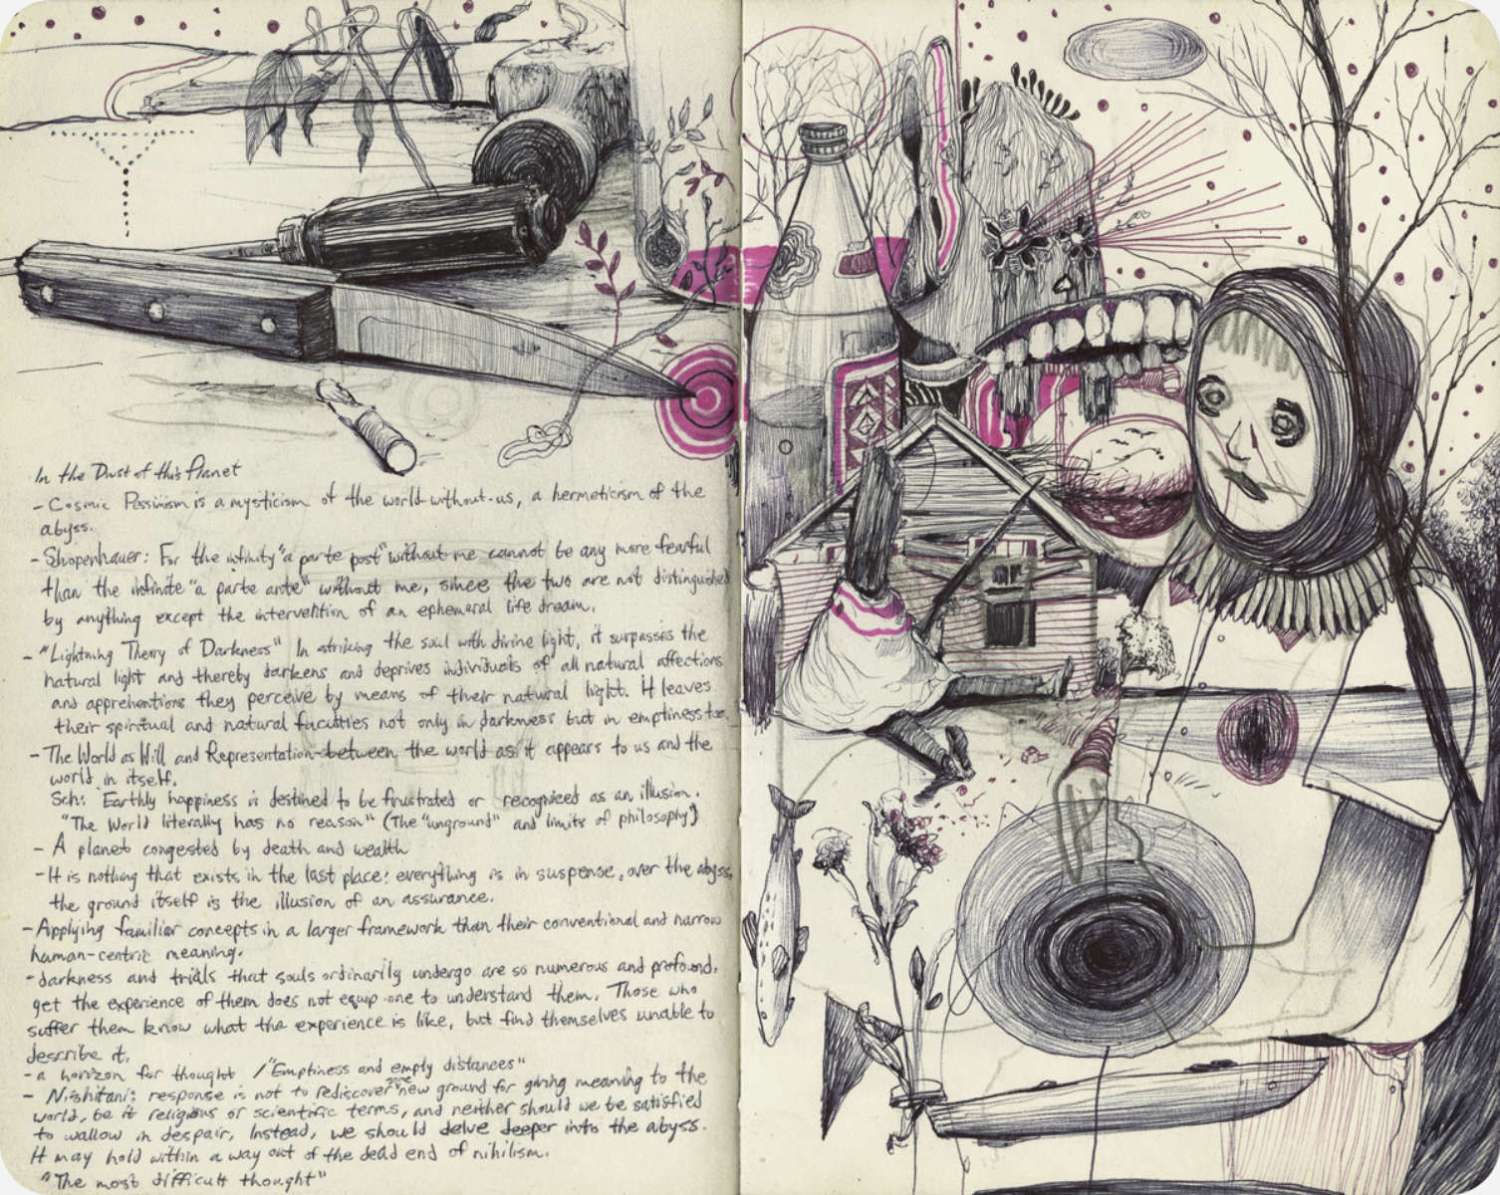 In the Dust of this Planet
- Cosmic Pessimism is a mysticism of the world-without-us, a hermeticism of the
abyss.
- Shopenhauer: For the infinity "a parte post" without me cannot be any more fearful
than the infinite "a parte ante" without me, since the two are not distinguished
by anything except the intervention of an ephemeral life dream.
- "Lightning Theory of Darkness" In striking the soul with divine light, it surpasses the
natural light and thereby darkens and deprives individuals of all natural affections
and apprehentions they perceive by means of their natural light. It leaves
their spiritual and natural faculties not only in darkness but in emptiness too.
- The World as Will and Representation-between the world as it appears to us and the
world in itself.
Sch: Earthly happiness is destined to be frustrated or recognized as an illusion.
"The World literally has no reason" (The "unground" and limits of philosophy)
- A planet congested by death and wealth
- It is nothing that exists in the last place: everything is in suspense, over the abyss,
the ground itself is the illusion of an assurance.
- Applying familiar concepts in a larger framework than their conventional and narrow
human-centric meaning.
- darkness and trials that souls ordinarily undergo are so numerous and profound,
yet the experience of them does not equip one to understand them. Those who
suffer them know what the experience is like, but find themselves unable to
describe it.
- a horizon for thought / "Emptiness and empty distances"
- Nishitani: response is not to rediscover some new ground for giving meaning to the
world, be it religious or scientific terms, and neither should we be satisfied
to wallow in despair, Instead, we should delve deeper into the abyss.
It may hold within a way out of the dead end of nihilism.
"The most difficult thought"